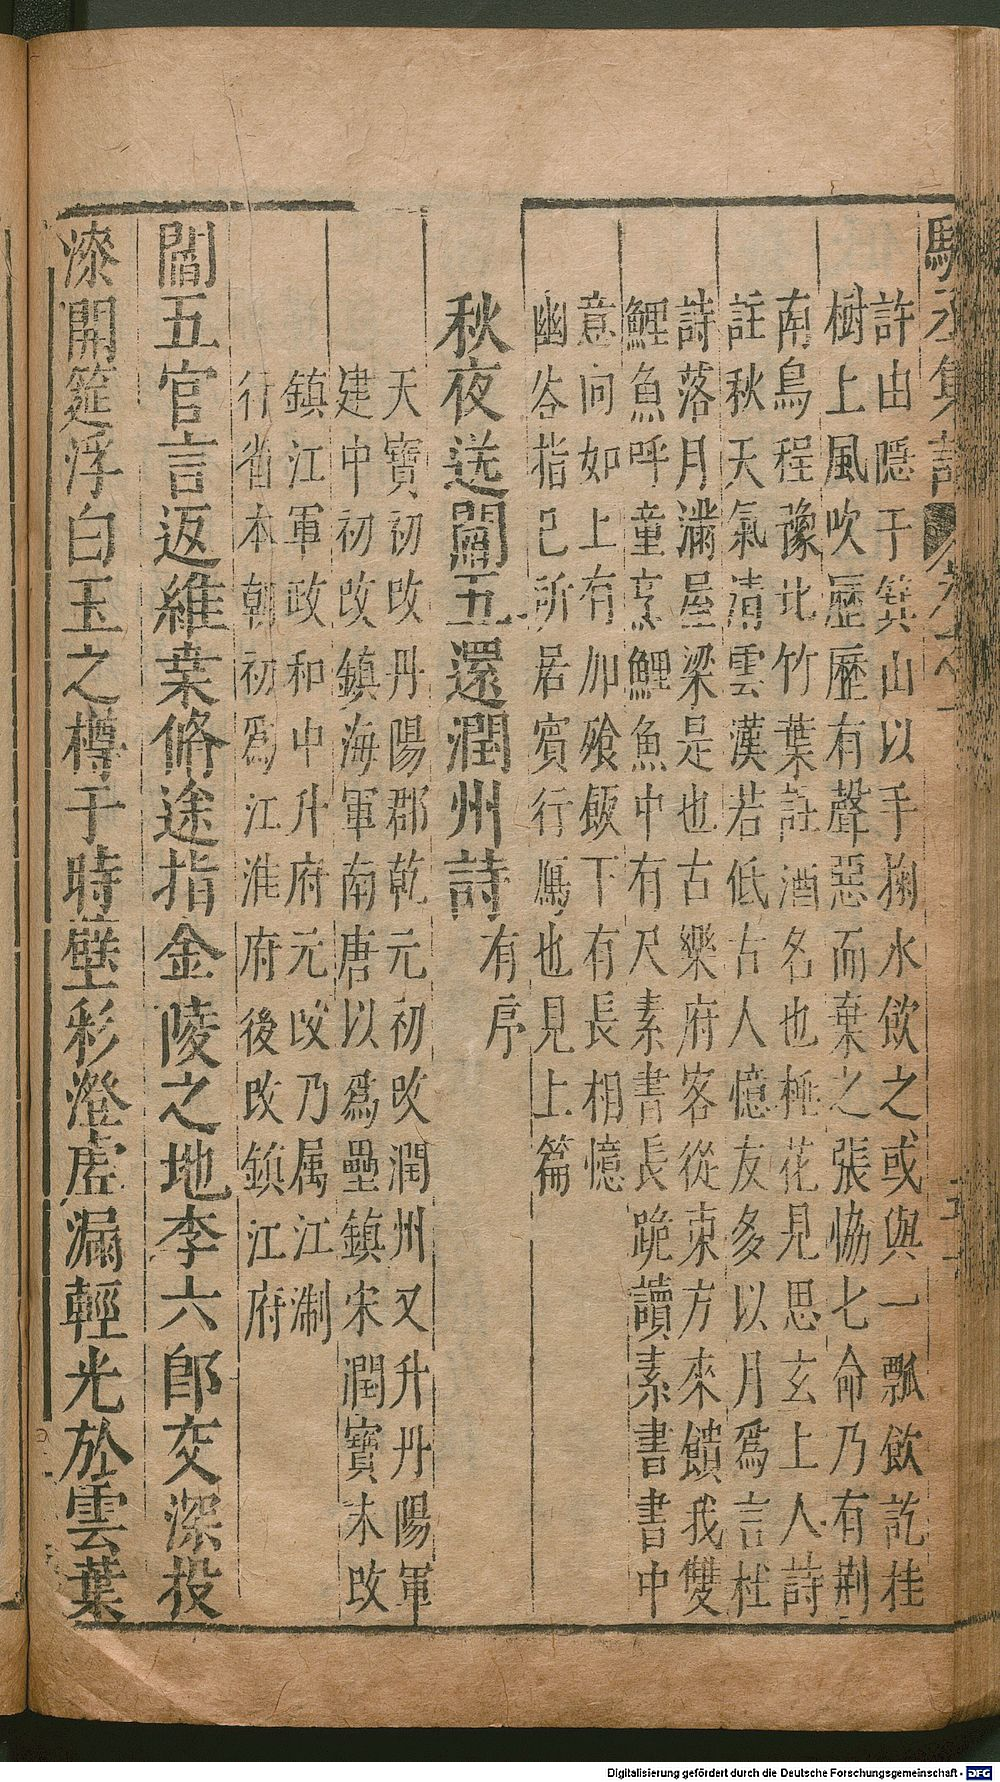 駱丞集註 卷之
許由隱于箕山以手掬水飲之或與一瓢飲訖桂
樹上風吹歷歷有聲惡而棄之張協七命乃有荆
南烏程豫北竹葉註酒名也極花見思玄上人詩
註秋天氣清雲漢若低古人憶友多以月爲言杜
詩落月滿屋梁是也古樂府客從東方來饋我雙
鯉魚呼童烹鯉魚中有尺素書長跪讀素書書中
意何如上有加飱飯下有長相憶
幽谷指巳所居賓行鴈也見上篇
秋夜送閻五還潤州詩有序
天寶初改丹陽郡乾元初改潤州又升丹陽軍
建中初改鎮海軍南唐以爲壘鎮宋潤寶末改
鎮江軍政和中升府元改乃属江淛
行省本朝初爲江淮府後改鎮江府
閻五官言返維桒脩途指金陵之地李六郎交深投
漆開筵浮白玉之樽于時壁彩澄虗漏輕光於雲葉
Digitalisierung gefördert durch die Deutsche Forschungsgemeinschaft - DFG